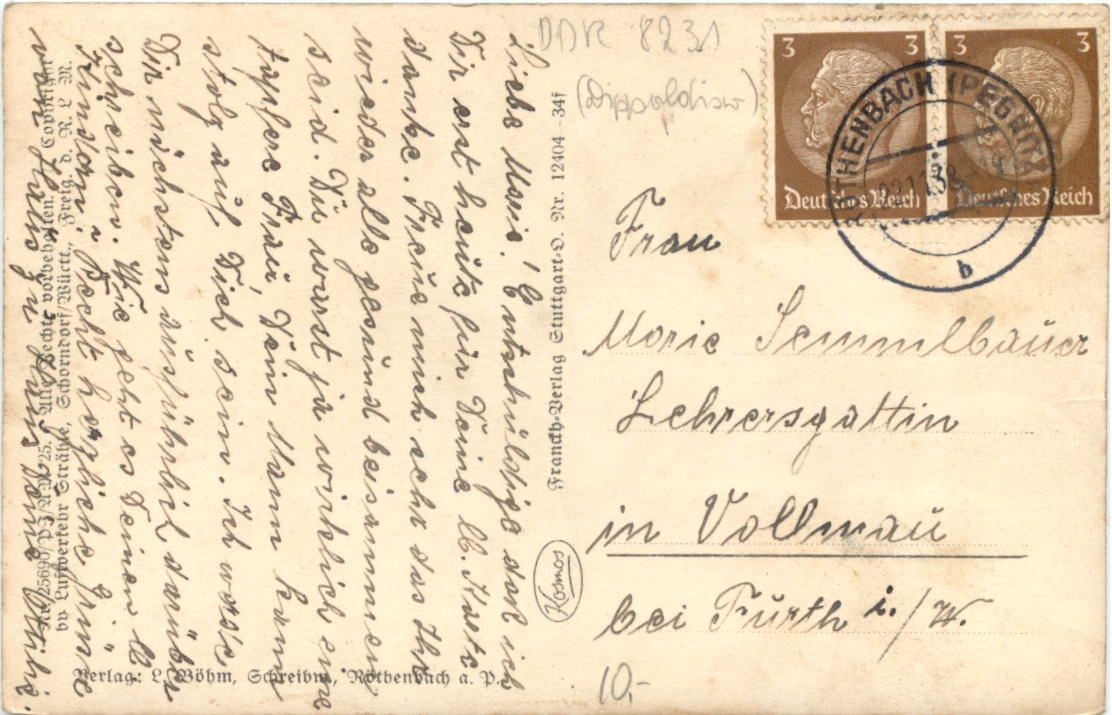 DDR 8231
(Dippoldisw)
3 3
Deutsches Reich
3 3
Deutsches Reich
RÖTHENBACH (PEGNITZ)
b
Frau
Marie Semmelbauer
Lehrersgattin
in Vollmau
bei Furth i./W.
10,-
Liebe Marie! Entschuldige daß ich
Dir erst heute für Deine lb. Karte
danke. Freue mich sehr das Ihr
wieder alle gesund beisammen
seid. Du warst ja wirklich eine
tapfere Frau, Dein Mann kann
stolz auf Dich sein. Ich werde
Dir nächstens ausführlich darüber
schreiben. Wie geht es Deinen lb
Kindern? Recht herzliche Grüße
von Haus zu Haus
Franckh-Verlag Stuttgart-O. Nr. 12404 34f
Kosmos
Alle Rechte vorbehalten. Copyright
by Luftverkehr Strähle, Schorndorf/Württ., Freig. d. R. L. M.
Verlag: L. Böhm, Schreibw., Röthenbach a. P.